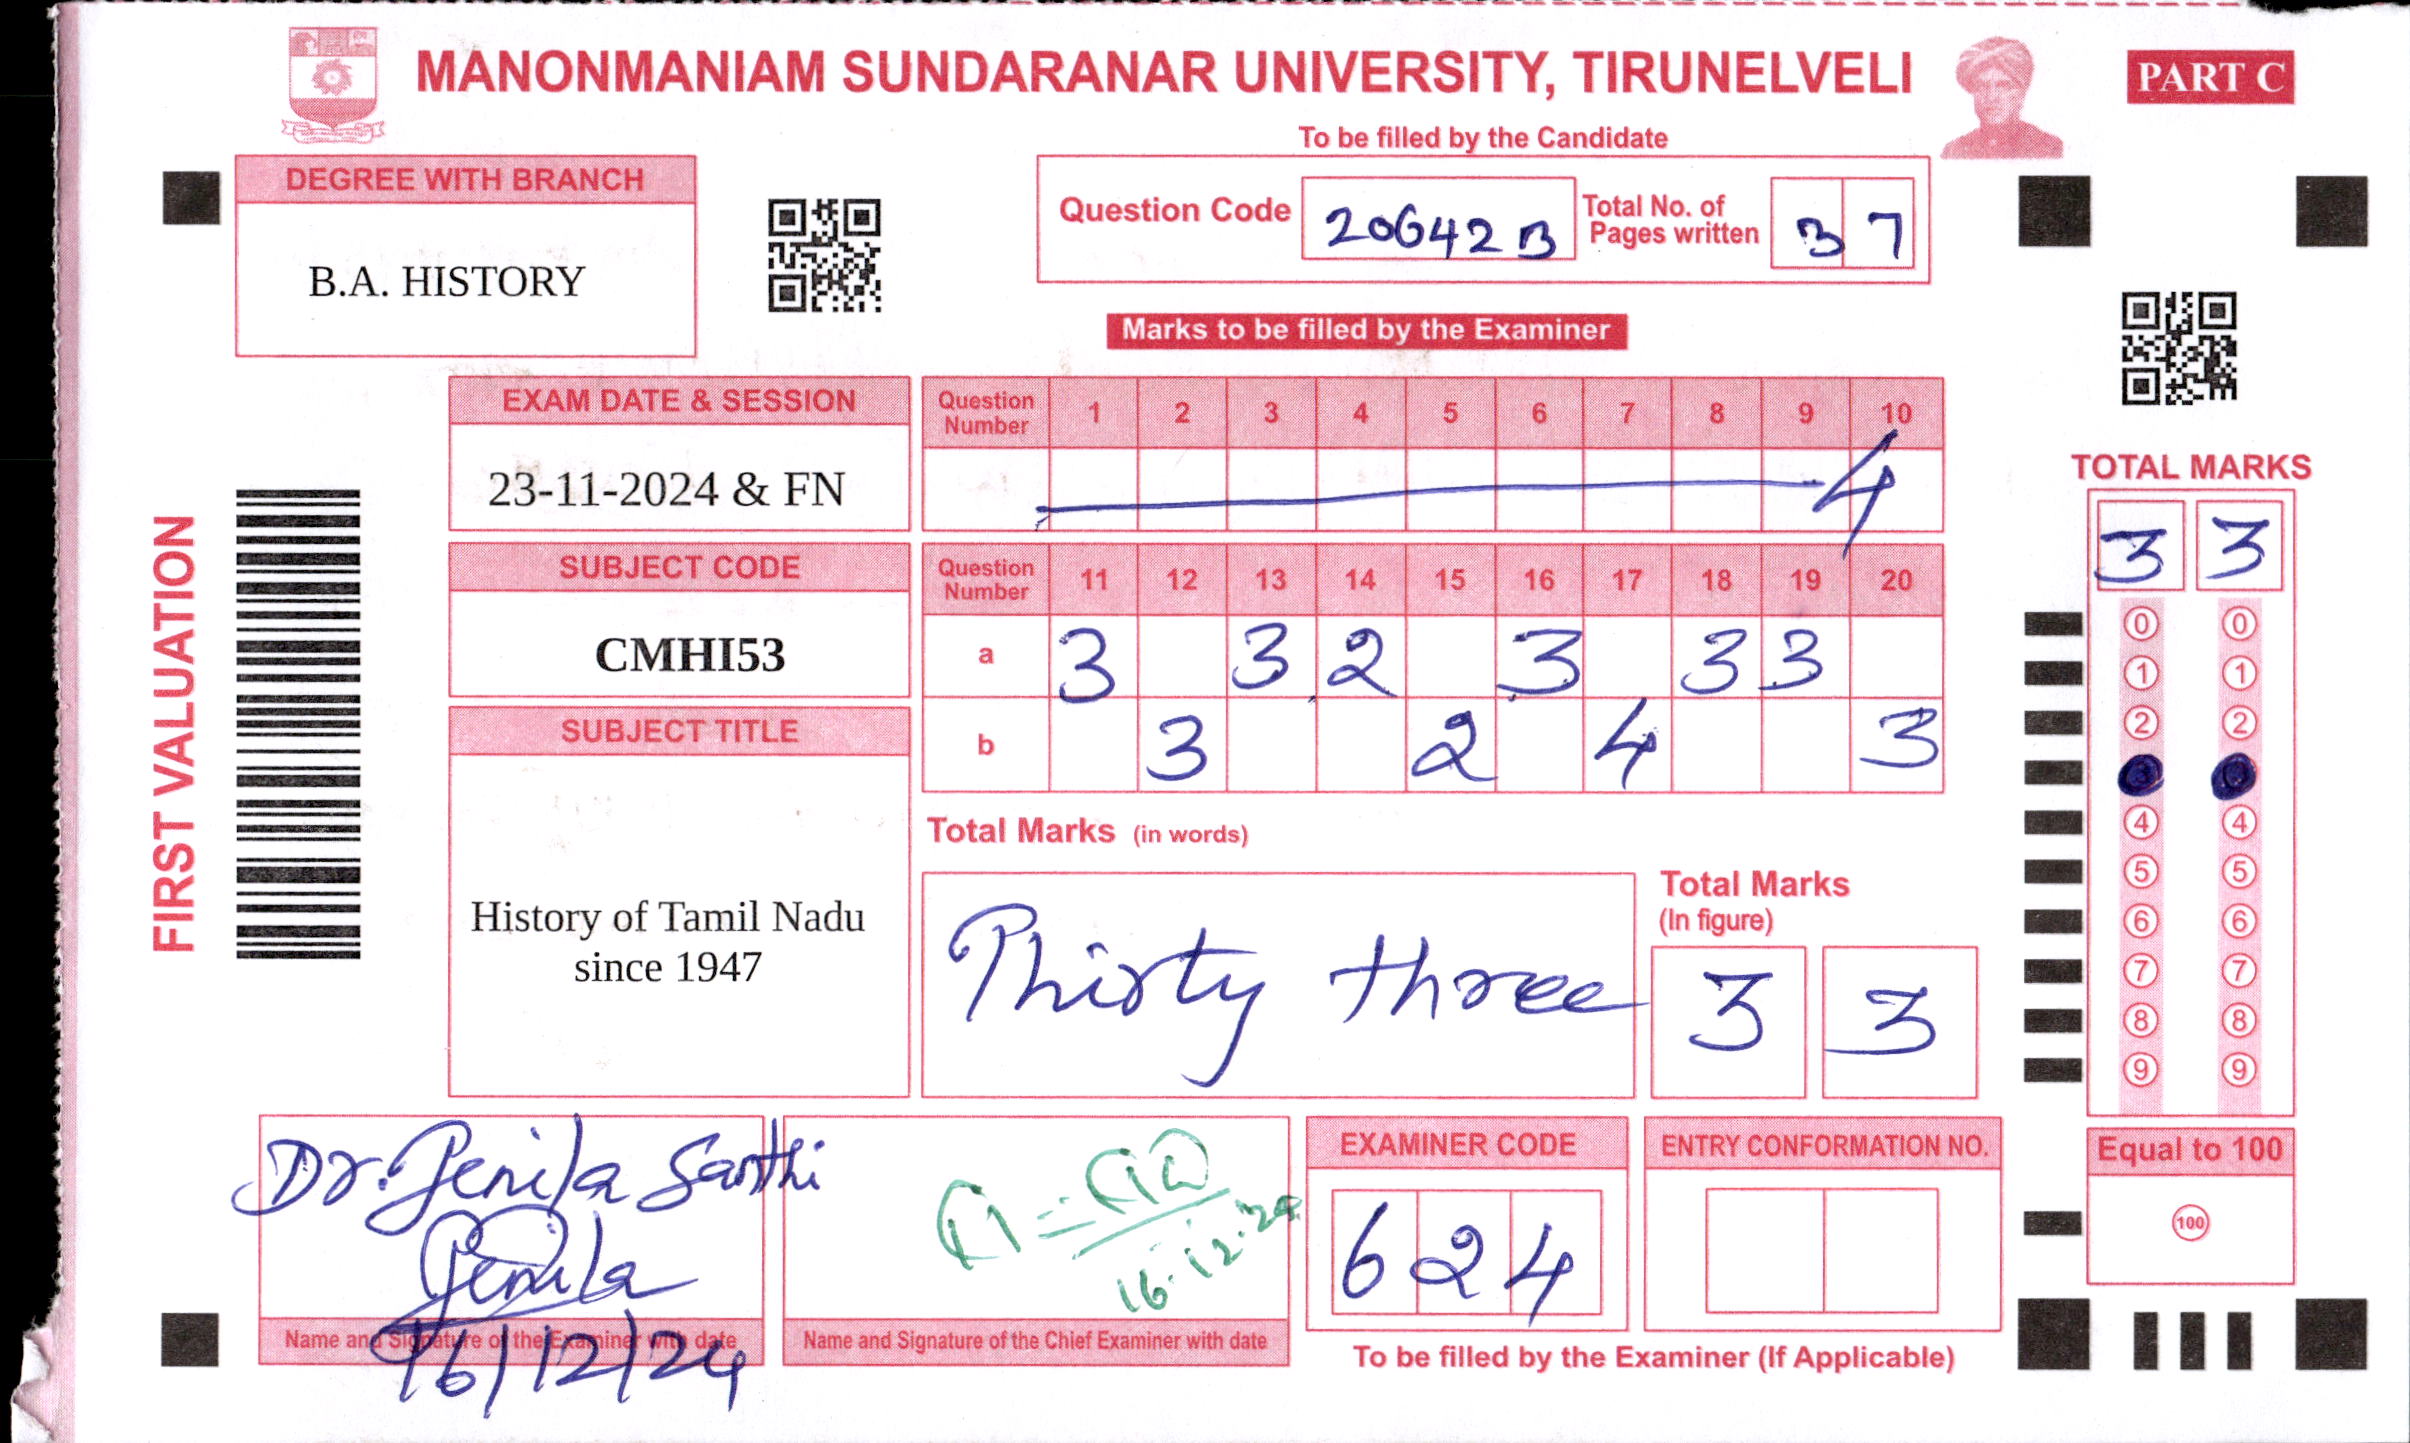 MANONMANIAM SUNDARANAR UNIVERSITY, TIRUNELVELI
PART C
To be filled by the Candidate
DEGREE WITH BRANCH
B.A. HISTORY
Question Code 20642B
Total No. of Pages written 37
Marks to be filled by the Examiner
EXAM DATE & SESSION
23-11-2024 & FN
Question Number 1 2 3 4 5 6 7 8 9 10
4
SUBJECT CODE
CMHI53
Question Number 11 12 13 14 15 16 17 18 19 20
a 3 3 2 3 3 3
b 3 2 4 3
SUBJECT TITLE
History of Tamil Nadu
since 1947
Total Marks (in words)
Thirty three
Total Marks
(In figure)
3 3
FIRST VALUATION
TOTAL MARKS
3 3
0 0
1 1
2 2
4 4
5 5
6 6
7 7
8 8
9 9
Equal to 100
100
Dr. Jenila Santhi
Jenila
16/12/24
Name and Signature of the Examiner with date
16.12.24
Name and Signature of the Chief Examiner with date
EXAMINER CODE
624
ENTRY CONFORMATION NO.
To be filled by the Examiner (If Applicable)